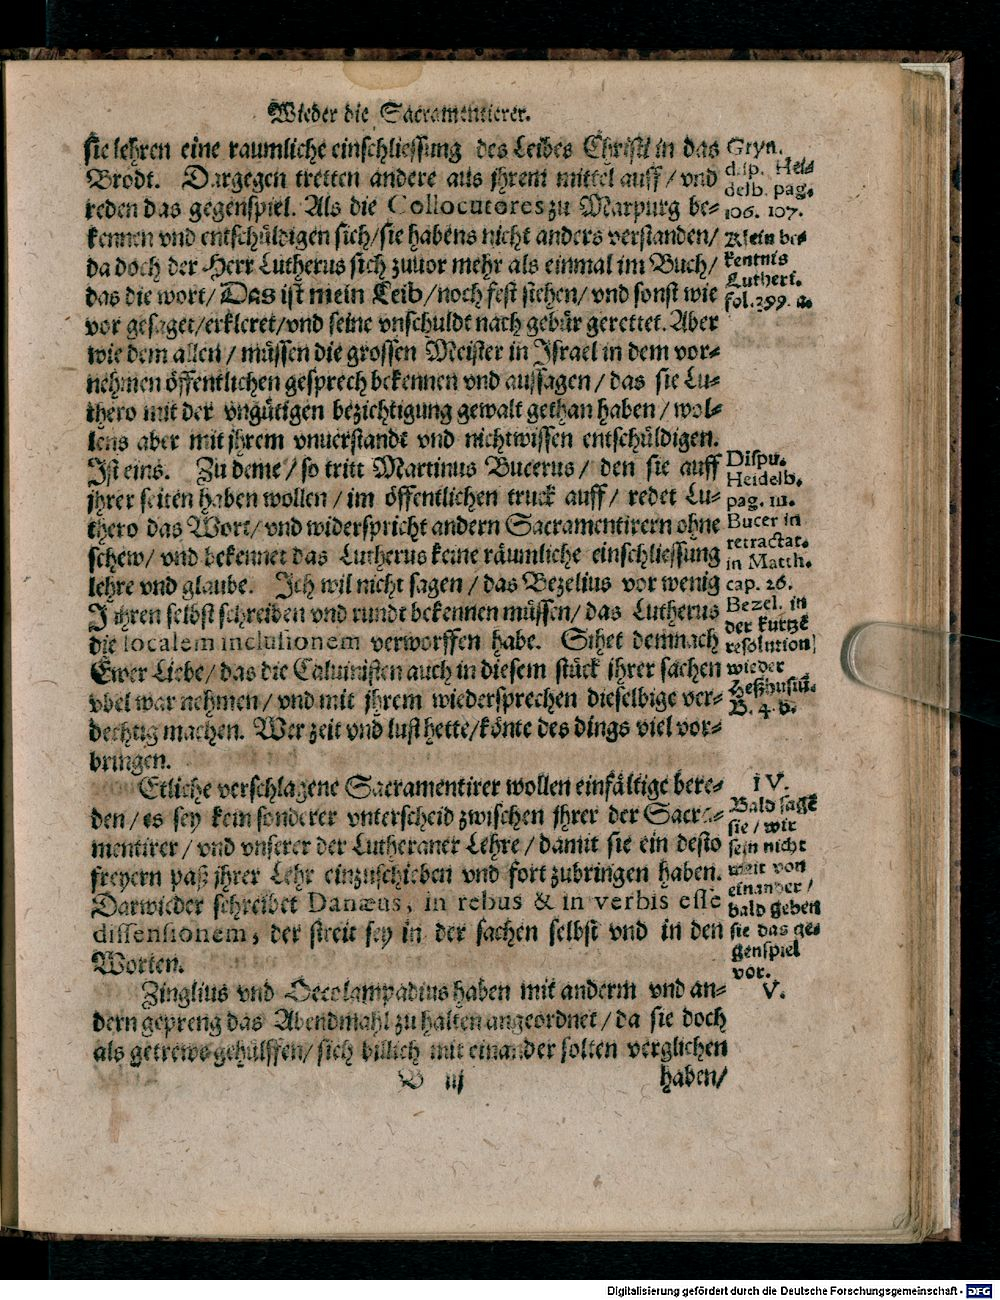 Wieder die Sacramentierer.
sie lehren eine raumliche einschliessung des Leibes Christi in das
Brodt. Dargegen tretten andere aus jhrem mittel auff / vnd
reden das gegenspiel. Als die Collocutores zu Marpurg be-
kennen vnd entschüldigen sich / sie habens nicht anders verstanden /
da doch der Herr Lutherus sich zuuor mehr als einmal im Buch /
das die wort / Das ist mein Leib / noch fest stehen / vnd sonst wie
vor gesaget / erkleret / vnd seine vnschuldt nach gebür gerettet. Aber
wie dem allen / müssen die grossen Meister in Israel in dem vor-
nehmen öffentlichen gesprech bekennen vnd aussagen / das sie Lu-
thero mit der vngütigen bezichtigung gewalt gethan haben / wol-
lens aber mit jhrem vnuerstandt vnd nichtwissen entschüldigen.
Ist eins. Zu deme / so tritt Martinus Bucerus / den sie auff
jhrer seiten haben wollen / im öffentlichen truck auff / redet Lu-
thero das Wort / vnd widerspricht andern Sacramentirern ohne
schew / vnd bekennet das Lutherus keine räumliche einschliessung
lehre vnd glaube. Ich wil nicht sagen / das Bezelius vor wenig
Jahren selbst schreiben vnd rundt bekennen müssen / das Lutherus
die localem inclusionem verworffen habe. Sihet demnach
Ewer Liebe / das die Caluinisten auch in diesem stück jhrer sachen
vbel war nehmen / vnd mit jhrem wiedersprechen dieselbige ver-
dechtig machen. Wer zeit vnd lust hette / könte des dings viel vor-
bringen.
Etliche verschlagene Sacramentirer wollen einfältige bere-
den / es sey kein sonderer vnterscheid zwischen jhrer der Sacra-
mentirer / vnd vnserer der Lutheraner Lehre / damit sie ein desto
freyern paß jhrer Lehr einzuschieben vnd fort zubringen haben.
Darwieder schreibet Danæus, in rebus & in verbis esse
dissensionem, der streit sey in der sachen selbst vnd in den
Worten.
Zinglius vnd Oecolampadius haben mit anderm vnd an-
dern gepreng das Abendmahl zu halten angeordnet / da sie doch
als getrewe gehülffen / sich billich mit einander solten verglichen
B iij haben /
Gryn.
disp. Hei-
delb. pag.
106. 107.
Klein be-
kentnis
Lutheri.
fol. 399. a.
Dispu.
Heidelb.
pag. 111.
Bucer in
retractat.
in Matth.
cap. 26.
Bezel. in
der kurtze
resolution
wieder
Heßhusiū.
B. 4. b.
IV.
Bald sagē
sie / wir
sein nicht
weit von
einander /
bald geben
sie das ge-
genspiel
vor.
V.
Digitalisierung gefördert durch die Deutsche Forschungsgemeinschaft - DFG